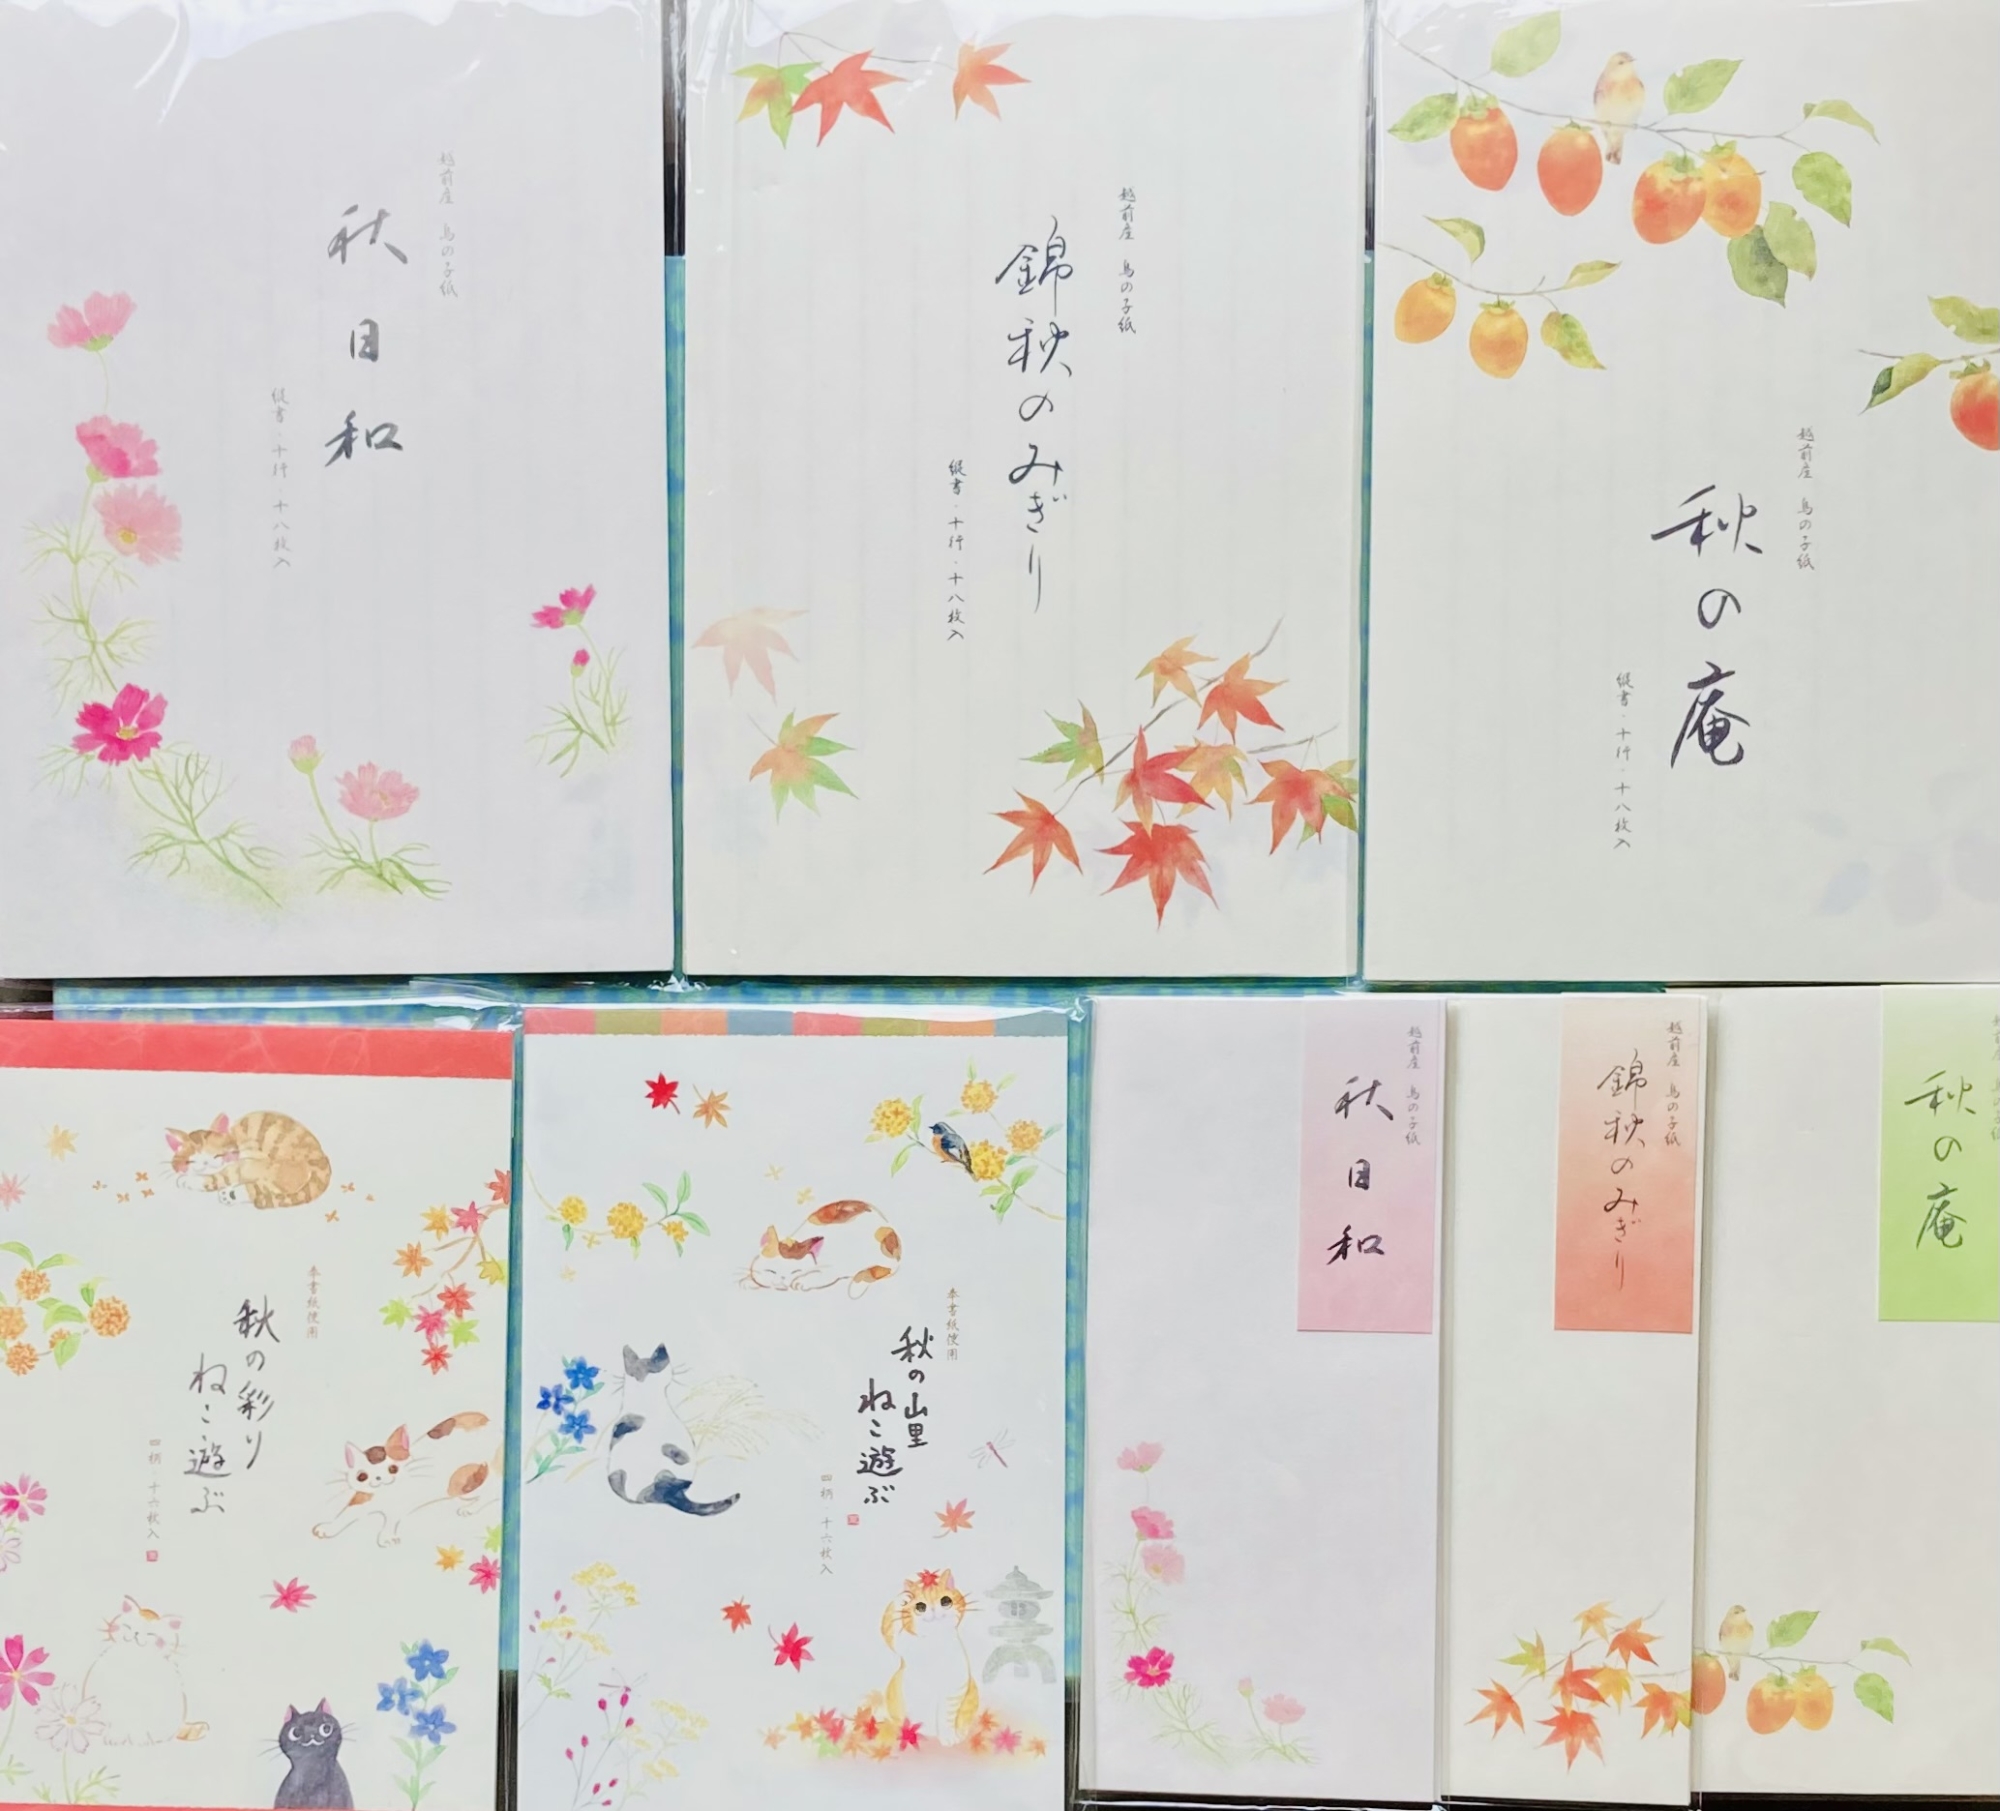 越前産 鳥の子紙
秋日和
縦書・十行 十八枚入
越前産 鳥の子紙
錦秋のみぎり
縦書・十行・十八枚入
越前産 鳥の子紙
秋の庵
縦書・十行・十八枚入
奉書紙使用
秋の彩り
ねこ遊ぶ
四柄・十六枚入
奉書紙使用
秋の山里
ねこ遊ぶ
四柄・十六枚入
越前産 鳥の子紙
秋日和
越前産 鳥の子紙
錦秋のみぎり
越前産 鳥の子紙
秋の庵